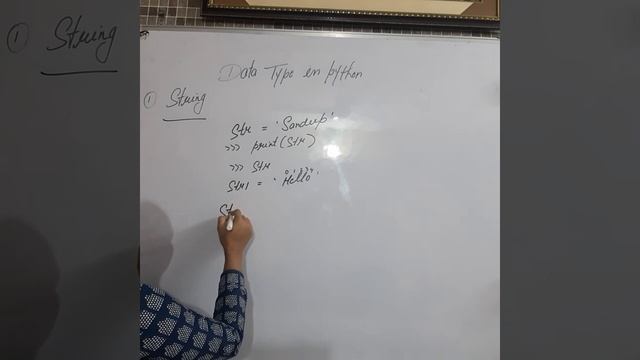 Data Type in python
① String
Str = 'Sandeep'
>>> print(Str)
>>> Str
0 1 2 3 4
Str1 = 'Hello'
St